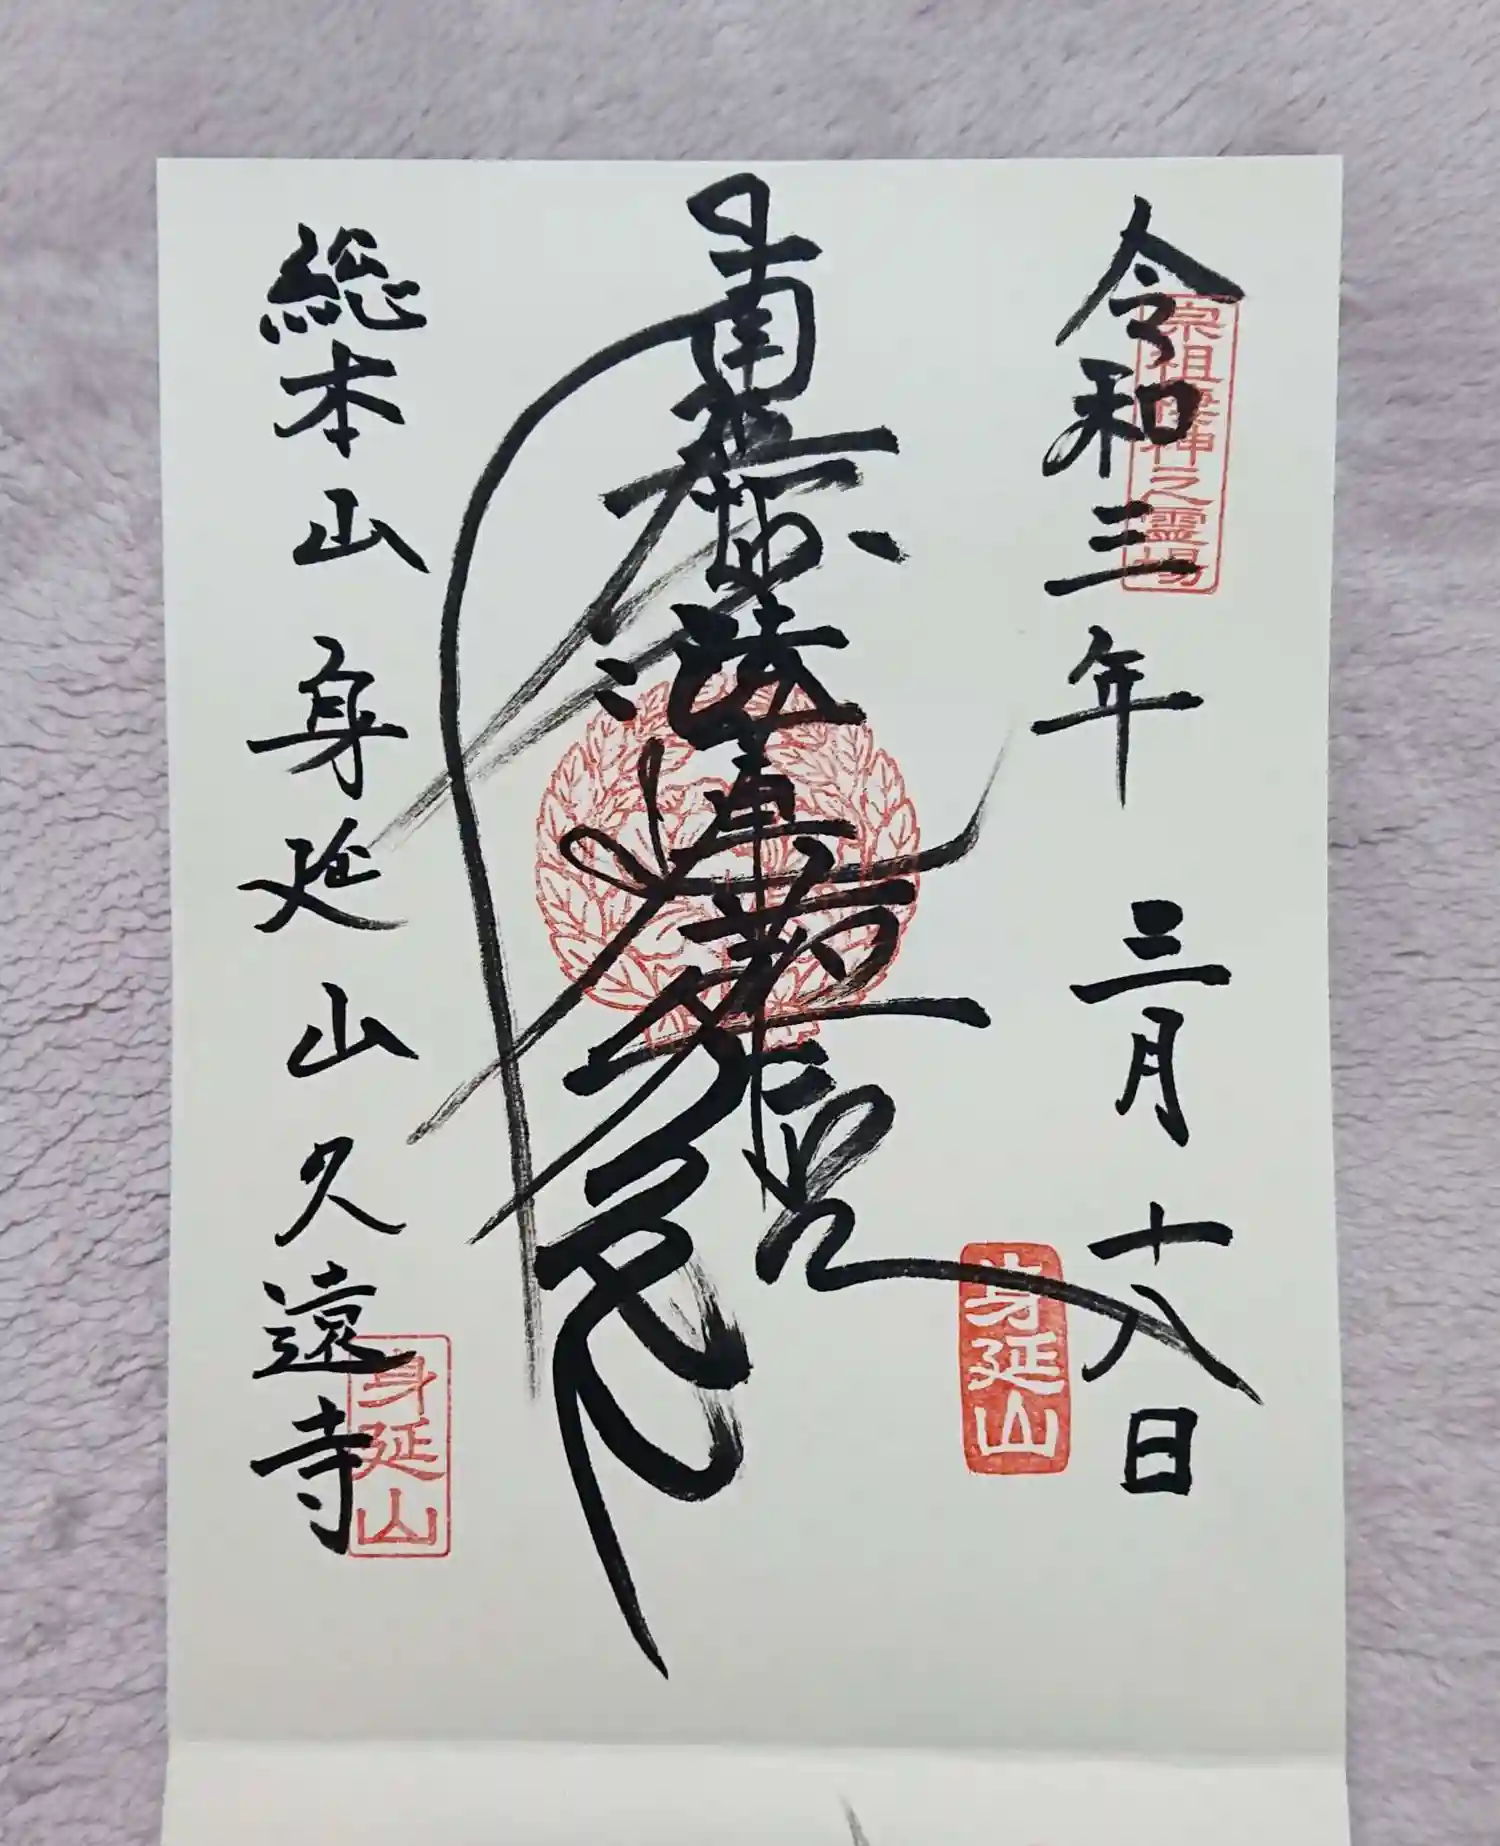 令和三年 三月十八日
宗祖棲神之霊場
南無妙法蓮華経
身延山
総本山 身延山久遠寺
身延山